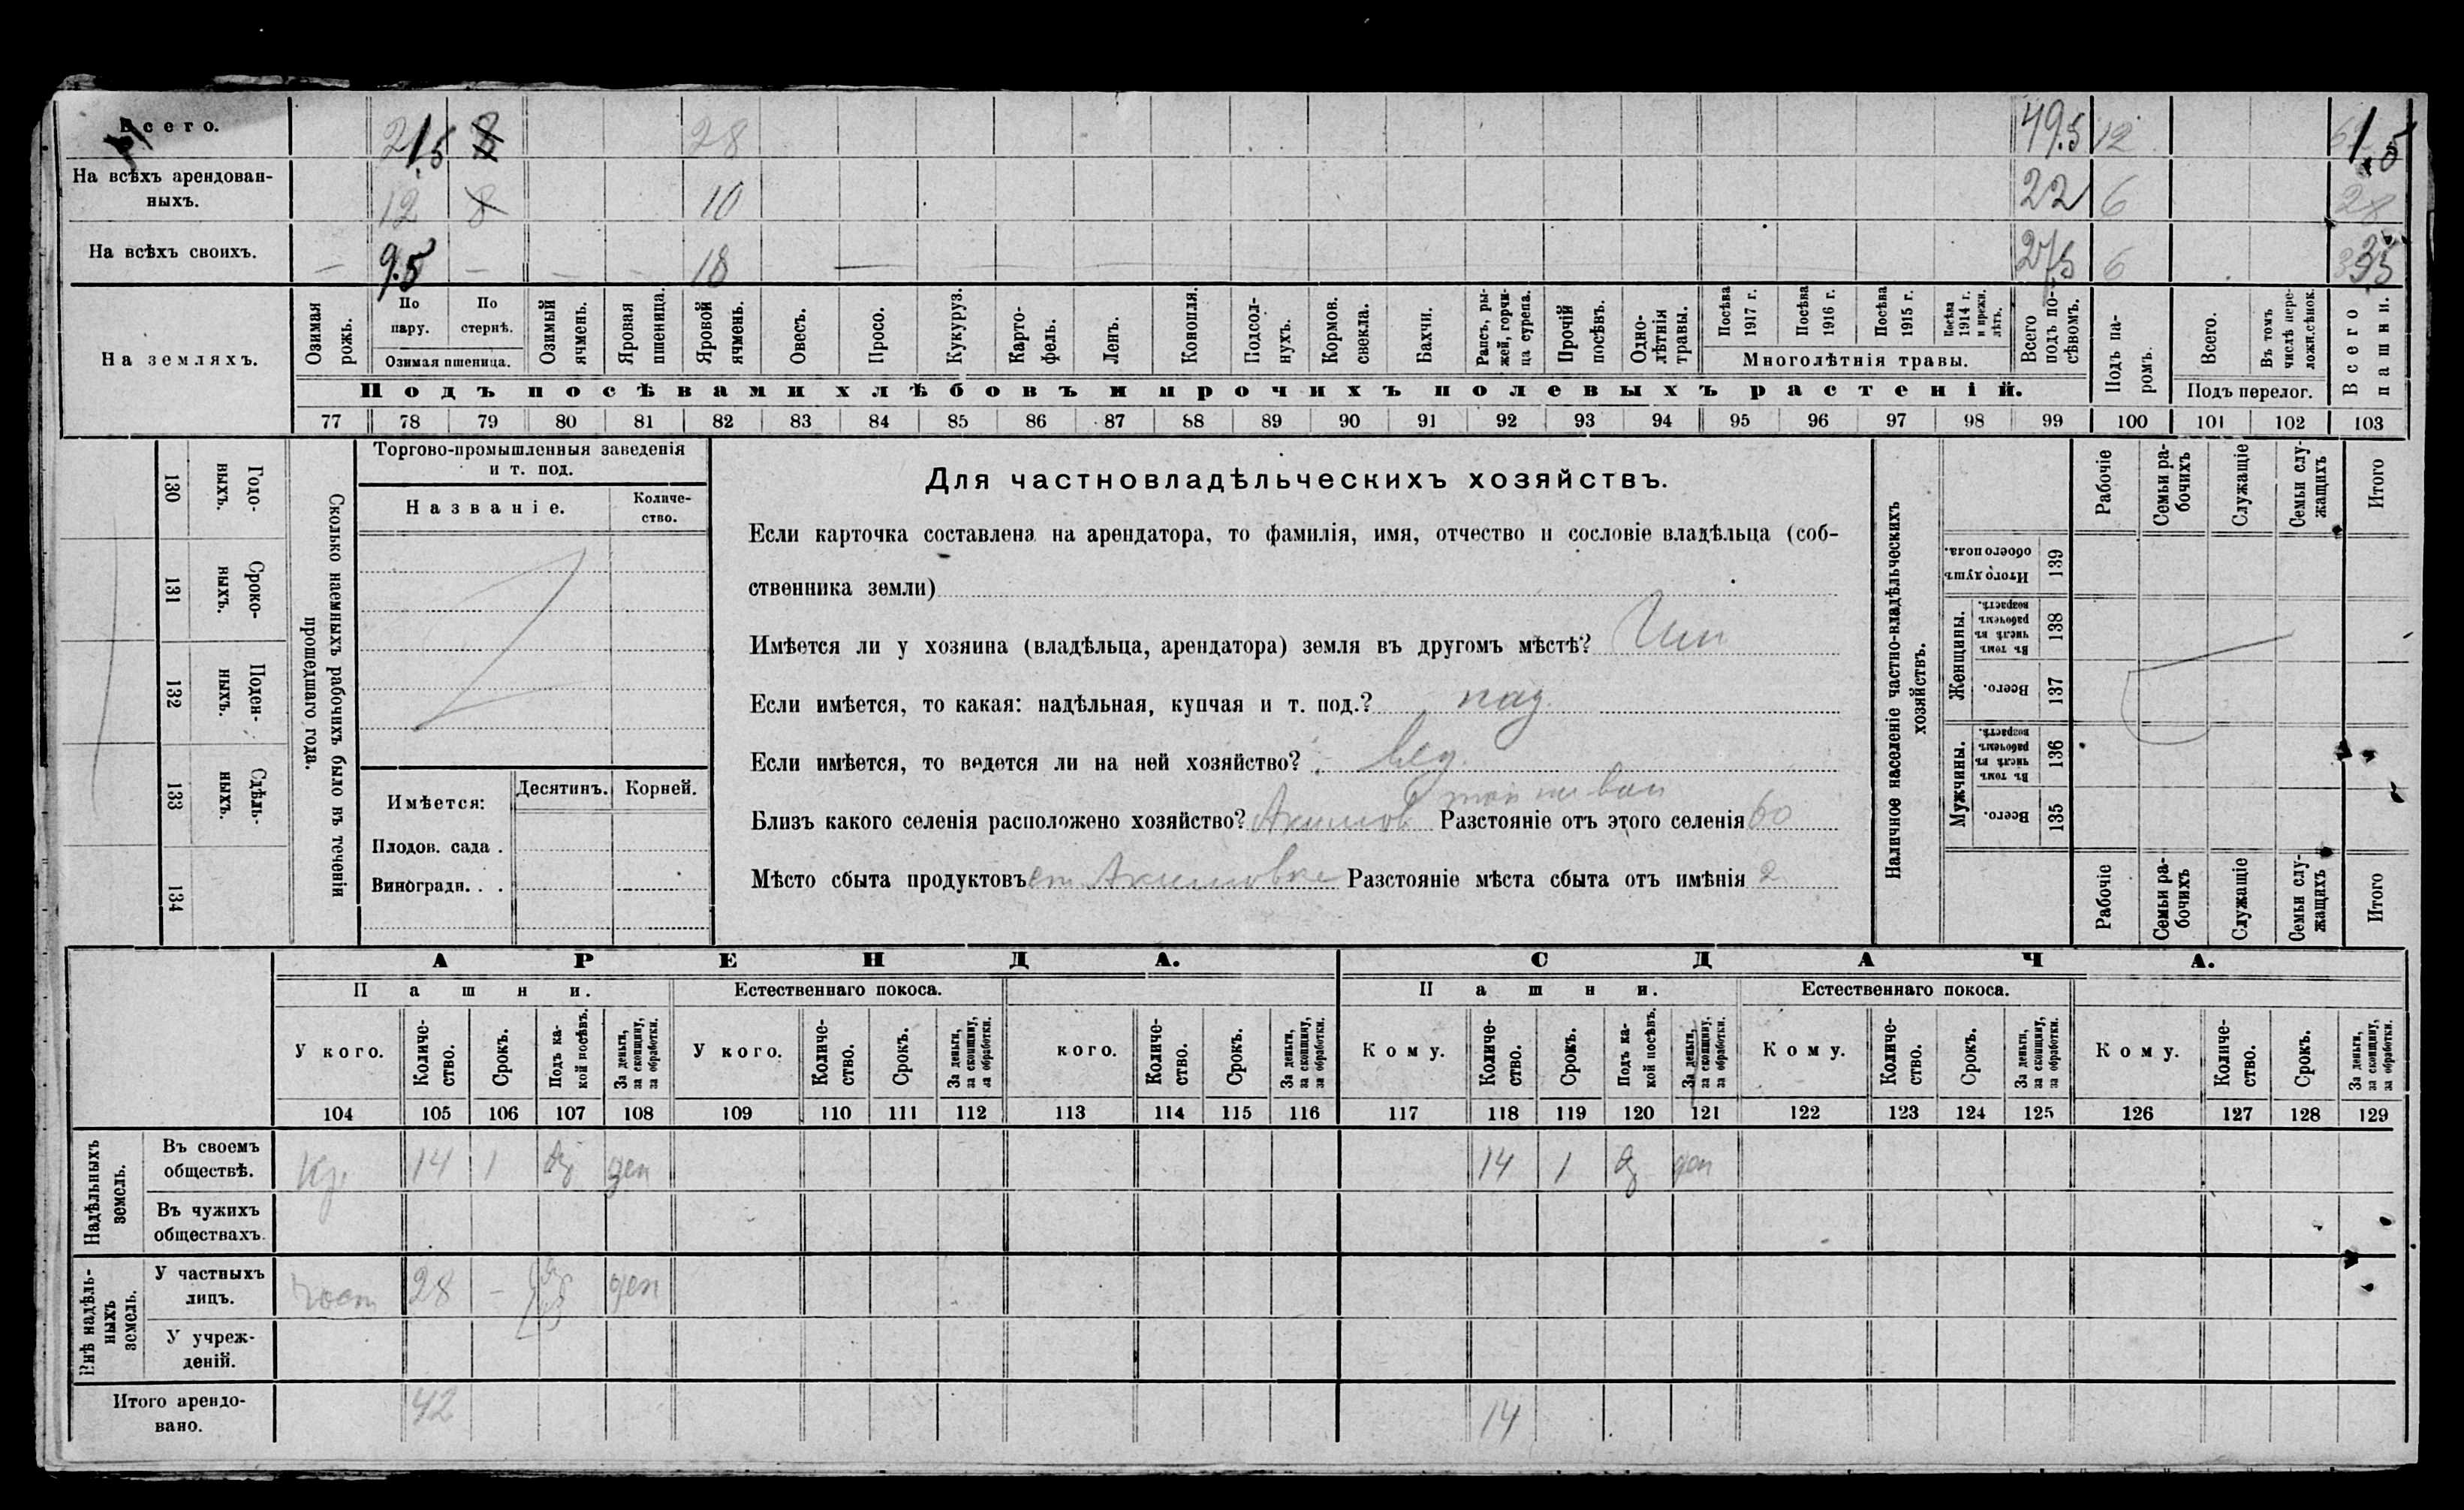 Всего. 21,5 8 28 49.5 12 1.5
На всѣхъ арендован-
ныхъ. 12 8 10 22 6 28
На всѣхъ своихъ. — 9.5 — — — 18 — 27,5 6
На земляхъ.
Озимая рожь.
По пару.
По стернѣ.
Озимая пшеница.
Озимый ячмень.
Яровая пшеница.
Яровой ячмень.
Овесъ.
Просо.
Кукуруз.
Карто-
фель.
Ленъ.
Конопля.
Подсол-
нухъ.
Кормов.
свекла.
Бахчи.
Рапсъ, ры-
жей, горчи-
ца сурепа.
Прочій
посѣвъ.
Одно-
лѣтнія
травы.
Посѣва
1917 г.
Посѣва
1916 г.
Посѣва
1915 г.
Посѣва
1914 г.
и прежн.
лѣтъ.
Многолѣтнія травы.
Всего
подъ по-
сѣвомъ.
Подъ па-
ромъ.
Всего.
Въ томъ
числѣ пере-
ложн.сѣнок.
Подъ перелог.
Всего
пашни.
Подъ посѣвами хлѣбовъ и прочихъ полевыхъ растеній.
77 78 79 80 81 82 83 84 85 86 87 88 89 90 91 92 93 94 95 96 97 98 99 100 101 102 103
130 Годо-
ныхъ.
131 Сроко-
ныхъ.
132 Поден-
ныхъ.
133 Сдѣль-
ныхъ.
134
Сколько наемныхъ рабочихъ было въ теченіи
прошедшаго года.
Торгово-промышленныя заведенія
и т. под.
Названіе.
Количе-
ство.
Имѣется:
Десятинъ. Корней.
Плодов. сада .
Виноградн. . .
Для частновладѣльческихъ хозяйствъ.
Если карточка составлена на арендатора, то фамилія, имя, отчество и сословіе владѣльца (соб-
ственника земли)
Имѣется ли у хозяина (владѣльца, арендатора) земля въ другомъ мѣстѣ?
Если имѣется, то какая: надѣльная, купчая и т. под.? над.
Если имѣется, то ведется ли на ней хозяйство? вед.
Близъ какого селенія расположено хозяйство? Акимов Разстояніе отъ этого селенія 60
Мѣсто сбыта продуктовъ ст Акимовка Разстояніе мѣста сбыта отъ имѣнія 2
Наличное населеніе частно-владѣльческихъ
хозяйствъ.
Рабочіе
Семьи ра-
бочихъ
Служащіе
Семьи слу-
жащихъ
Итого
Итого душъ
обоего пола.
139
Женщины.
Въ томъ
числѣ въ
рабочемъ
возрастѣ.
138
Всего.
137
Мужчины.
Въ томъ
числѣ въ
рабочемъ
возрастѣ.
136
Всего.
135
Рабочіе
Семьи ра-
бочихъ
Служащіе
Семьи слу-
жащихъ
Итого
АРЕНДА. СДАЧА.
Пашни. Естественнаго покоса. Пашни. Естественнаго покоса.
У кого.
Количе-
ство.
Срокъ.
Подъ ка-
кой посѣвъ.
За деньги,
за скопщину,
за обработки.
У кого.
Количе-
ство.
Срокъ.
За деньги,
за скопщину,
за обработки.
кого.
Количе-
ство.
Срокъ.
За деньги,
за скопщину,
за обработки.
Кому.
Количе-
ство.
Срокъ.
Подъ ка-
кой посѣвъ.
За деньги,
за скопщину,
за обработки.
Кому.
Количе-
ство.
Срокъ.
За деньги,
за скопщину,
за обработки.
Кому.
Количе-
ство.
Срокъ.
За деньги,
за скопщину,
за обработки.
104 105 106 107 108 109 110 111 112 113 114 115 116 117 118 119 120 121 122 123 124 125 126 127 128 129
Надѣльныхъ
земель.
Въ своемъ
обществѣ. Кр. 14 1 ден 14 1 ден
Въ чужихъ
обществахъ.
Внѣ надѣль-
ныхъ
земель.
У частныхъ
лицъ. 28 — ден
У учреж-
деній.
Итого арендо-
вано. 42 14